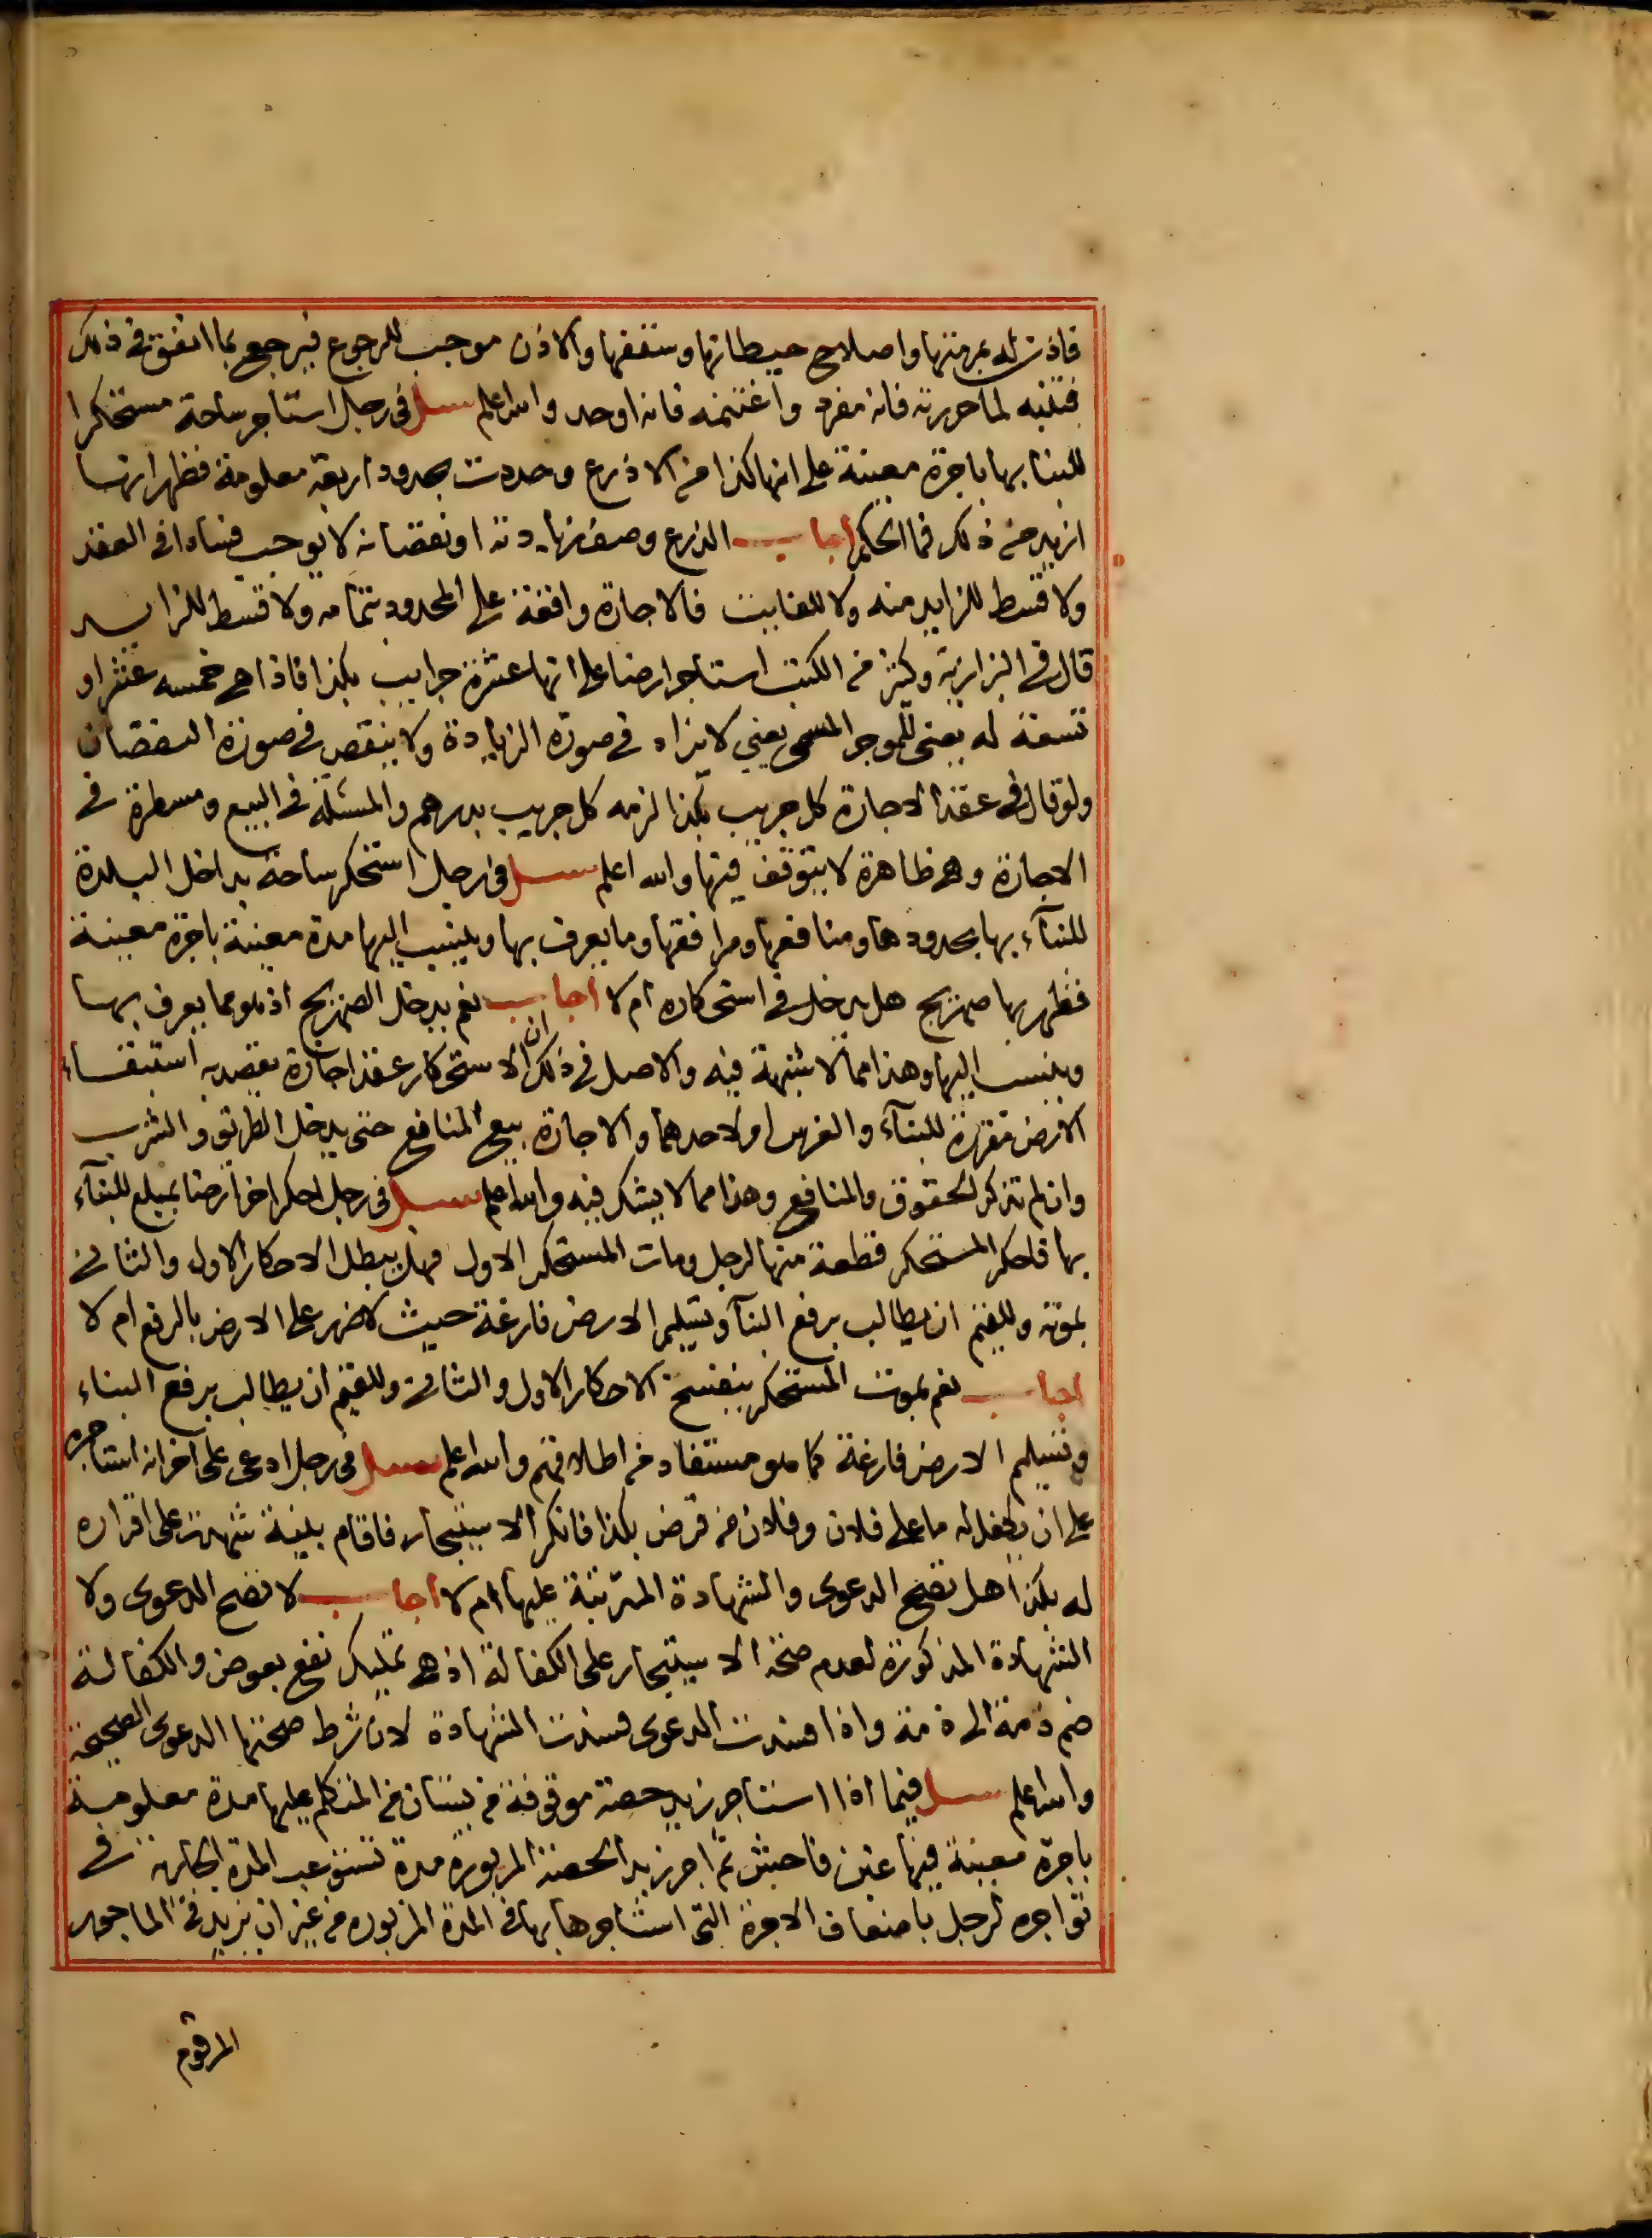 فاذن له بمرمتها واصلاح حيطانها وسقفها والاذن موجب للرجوع فيرجع بما انفق في ذلك
فتنبه لما حررته فانه مفرد واغتنمه فانه اوحد والله اعلم سيل في رجل استاجر ساحة مستحكرا
للبنا بها باجرة معينة على انها كذا من الاذرع وحددت بحدود اربعة معلومة فظهر انها
ازيد من ذلك فما الحكم اجاب الذرع وصف زيادته او نقصانه لا يوجب فسادا في العقد
ولا قسط للزايد منه ولا للفايت فالاجارة واقعة على المحدود بتمامه ولا قسط للزايد
قال في البزازية وكثير من الكتب استاجر ارضا على انها عشرة جرايب بكذا فاذا هي خمسه عشر او
تسعة له يعنى للموجر المسمى يعني لا يزاد في صورة الزيادة ولا ينقص في صورة النقصان
ولو قال في عقد الاجارة كل جريب بكذا لزمه كل جريب بدرهم والمسئلة في البيع ومسطرة في
الاجارة وهي ظاهرة لا يتوقف فيها والله اعلم سيل في رجل استحكر ساحة بداخل البلدة
للبنآء بها بحدودها ومنافعها ومرافقها وما يعرف بها وينسب اليها مدة معينة باجرة معينة
فظهر بها صهريج هل يدخل في استحكاره ام لا اجاب نعم يدخل الصهريج اذ هو مما يعرف بها
وينسب اليها وهذا مما لا شبهة فيه والاصل في ذلك ان الاستحكار عقد اجارة يقصد به استبقاء
الارض مقررة للبنآء والغرس او لاحدهما والاجارة بيع المنافع حتى يدخل الطريق والشرب
وان لم تذكر الحقوق والمنافع وهذا مما لا يشك فيه والله اعلم سيل في رجل احكر اخر ارضا بمبلغ للبنآء
بها فاحكر المستحكر قطعة منها لرجل ومات المستحكر الاول فهل يبطل الاحكار الاول والثاني
بموته وللقيم ان يطالب برفع البنآ وتسليم الارض فارغة حيث لا ضرر على الارض بالرفع ام لا
اجاب نعم بموت المستحكر ينفسخ الاحكار الاول والثاني وللقيم ان يطالب برفع البناء
وتسليم الارض فارغة كما هو مستفاد من اطلاقهم والله اعلم سيل في رجل ادعى على اخر انه استاجره
على ان يكفل له ما على فلان وفلان من قرض بكذا فانكر الاستيجار فاقام بينة شهدت على اقراره
له بكذا هل تصح الدعوى والشهادة المترتبة عليها ام لا اجاب لا تصح الدعوى ولا
الشهادة المذكورة لعدم صحة الاستيجار على الكفالة اذ هي تمليك نفع بعوض والكفالة
ضم ذمة الى ذمة واذا فسدت الدعوى فسدت الشهادة لان شرط صحتها الدعوى الصحيحة
والله اعلم سيل فيما اذا استاجر زيد حصة موقوفة من بستان من المتكلم عليها مدة معلومة
باجرة معينة فيها غبن فاحش ثم اجر زيد الحصة المزبورة مدة تستوعب المدة الجارية في
تواجره لرجل باضعاف الاجرة التي استاجرها بها في المدة المزبورة من غير ان يزيد في الماجور
المرقوم